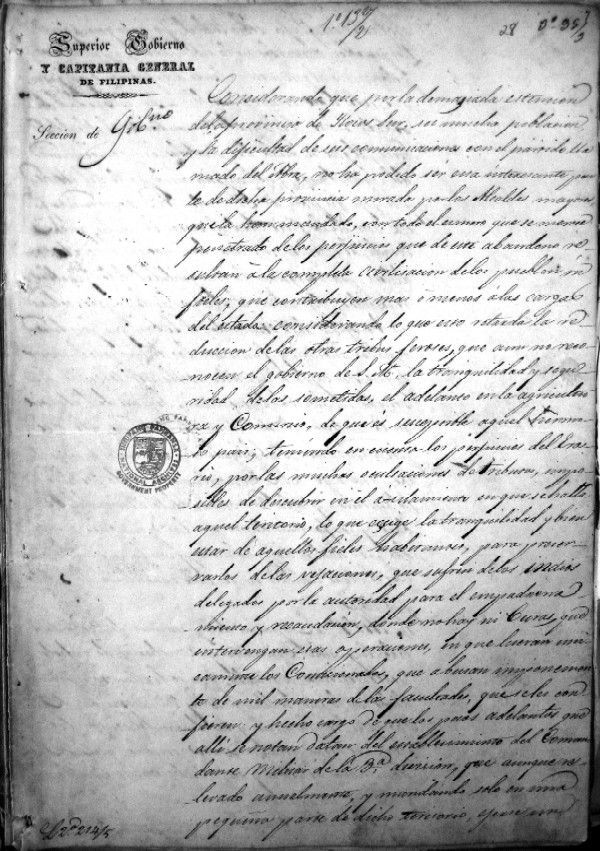 1º 13
28
Superior Gobierno
Y CAPITANIA GENERAL
DE FILIPINAS.
Seccion de Gobno
Considerando que por la demaciada estension
de la provincia de Ilocos Sur, su mucha poblacion
y la dificultad de sus comunicaciones con el partido lla
mado del Abra, no ha podido ser esta interesante par
te de dicha provincia mirada por los Alcaldes mayores
que la han mandado, con todo el esmero que se merece
penetrado de los perjuicios que de este abandono re
sultan á la completa civilisacion de los pueblos in
fieles, que contribuyen mas o menos á las cargas
del estado: considerando lo que esto retarda la re
duccion de las otras tribus feroses, que aun no reco
nocen el gobierno de S. M. la tranquilidad y segu
ridad de las sometidas, el adelanto en la agricultu
ra y Comercio, de que és suceptible aquel
pais; teniendo en cuenta los perjuicios del Era
rio, por las muchas ocultaciones de tributos, impo
sibles de descubrir en el aislamiento en que se halla
aquel territorio, lo que exige la tranquilidad y bien
estar de aquellos fieles habitantes, para preser
varlos de las vejaciones, que sufren de los Indios
delegados por la autoridad para el empadrona
miento y recaudacion, donde no hay ni Curas, que
intervengan esas operaciones, en que lucran uni
camente los Comisionados, que abusan impunemen
te de mil maneras de las facultades, que se les con
fieren: y hecho cargo de que los pasos adelantos que
alli se notan datan del establecimiento del Coman
dante Militar de la 3ª. division, que aunque re
levado anualmente, y mandando solo en una
pequeña parte de dicho territorio, ejerce una
NATIONAL ARCHIVES
GOVERNMENT PROPERTY